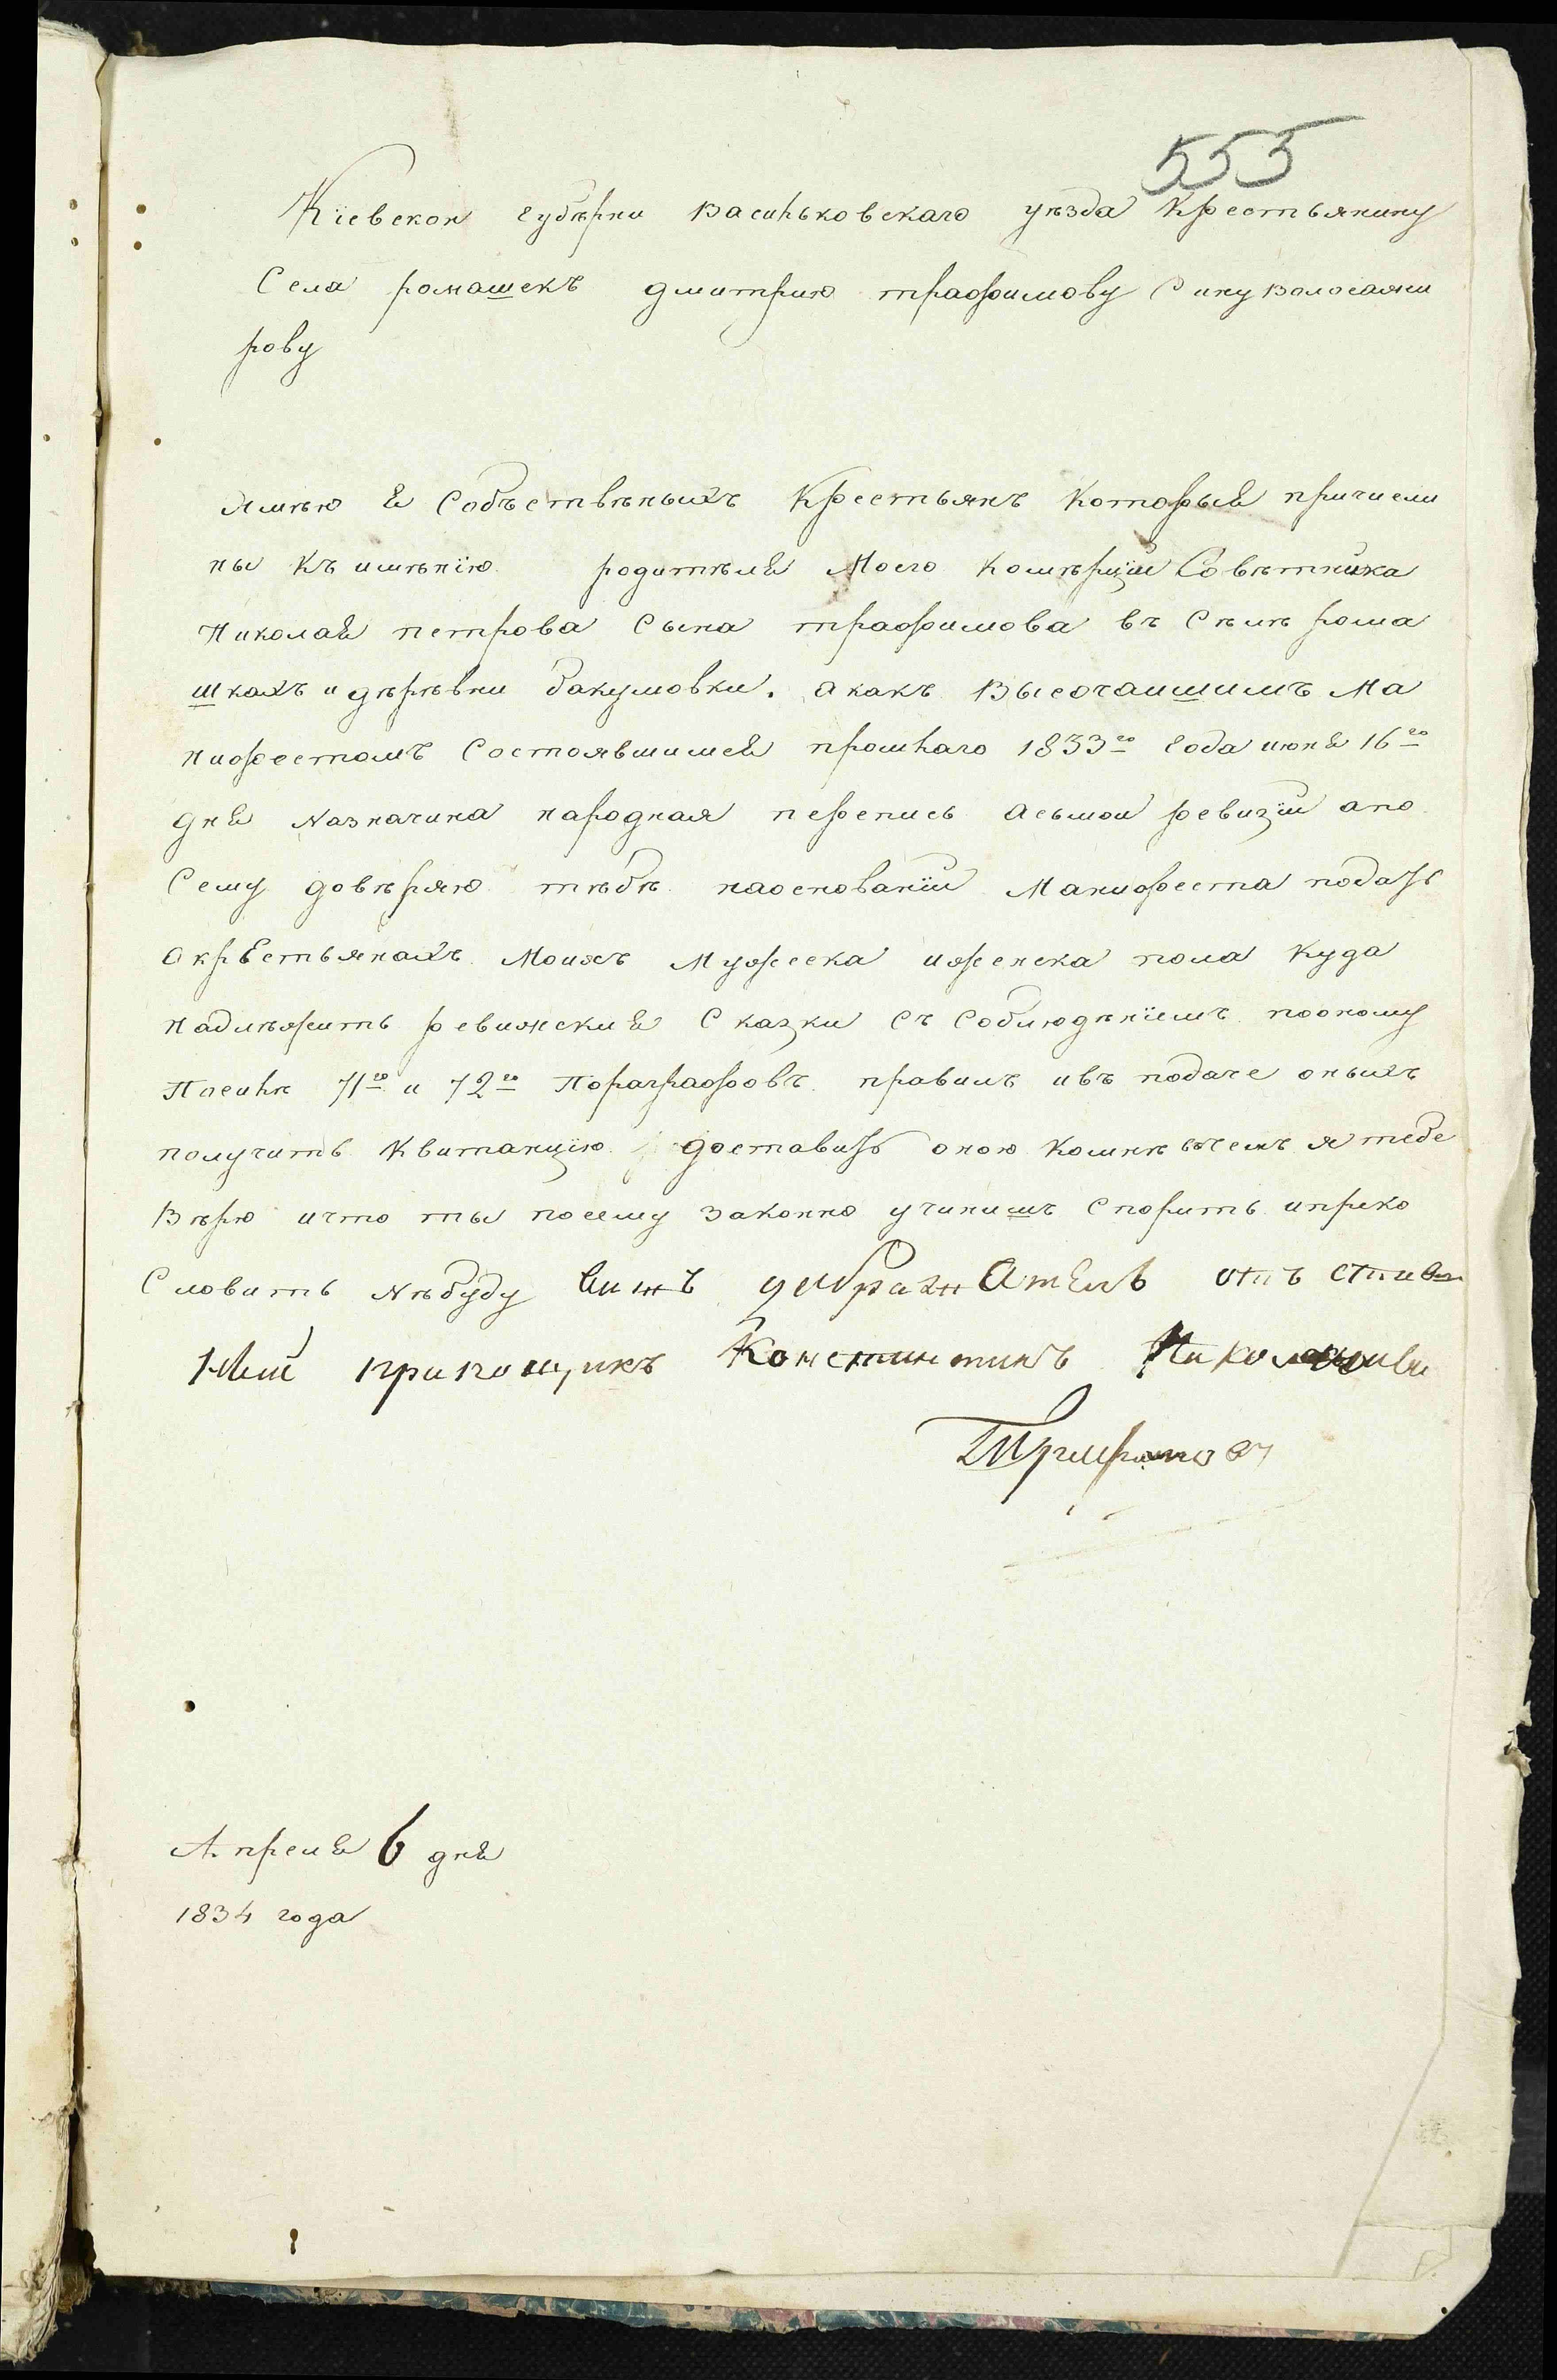 555
Кіевской губѣрни васильковскаго уѣзда Крестьянину
Села ромашекъ дмитрию трафимову Сину
рову
Имѣю я Собъствѣныхъ Крестьянъ Которыя причисли
ны къ имѣнію родитѣля Моего комѣрціи Совѣтника
Николая петрова Сына трафимова въ Сѣлѣ рома
шкахъ и дѣрѣвни бакумовки. а какъ Высочаишимъ Ма
нифестомъ Состоявшимся прошлаго 1833го года июня 16го
дня Назначина народная перепись асьмои ревизіи апо
Сему довѣряю тѣбѣ наоснованіи Манифеста подать
окрѣстьянахъ Моихъ Мужеска иженска пола Куда
надлѣжить ревижския Сказки Съ Соблюдѣніемъ
71го и 72го Порагрофовъ правилъ ивъ подаче оныхъ
получить Квитанцію доставить оною Комнѣ вчемъ я тебе
Вѣрю ичто ты посему законно учинишъ Спорить ипреко
Словить Нѣбуду
Константинъ
Апреля 6 дня
1834 года